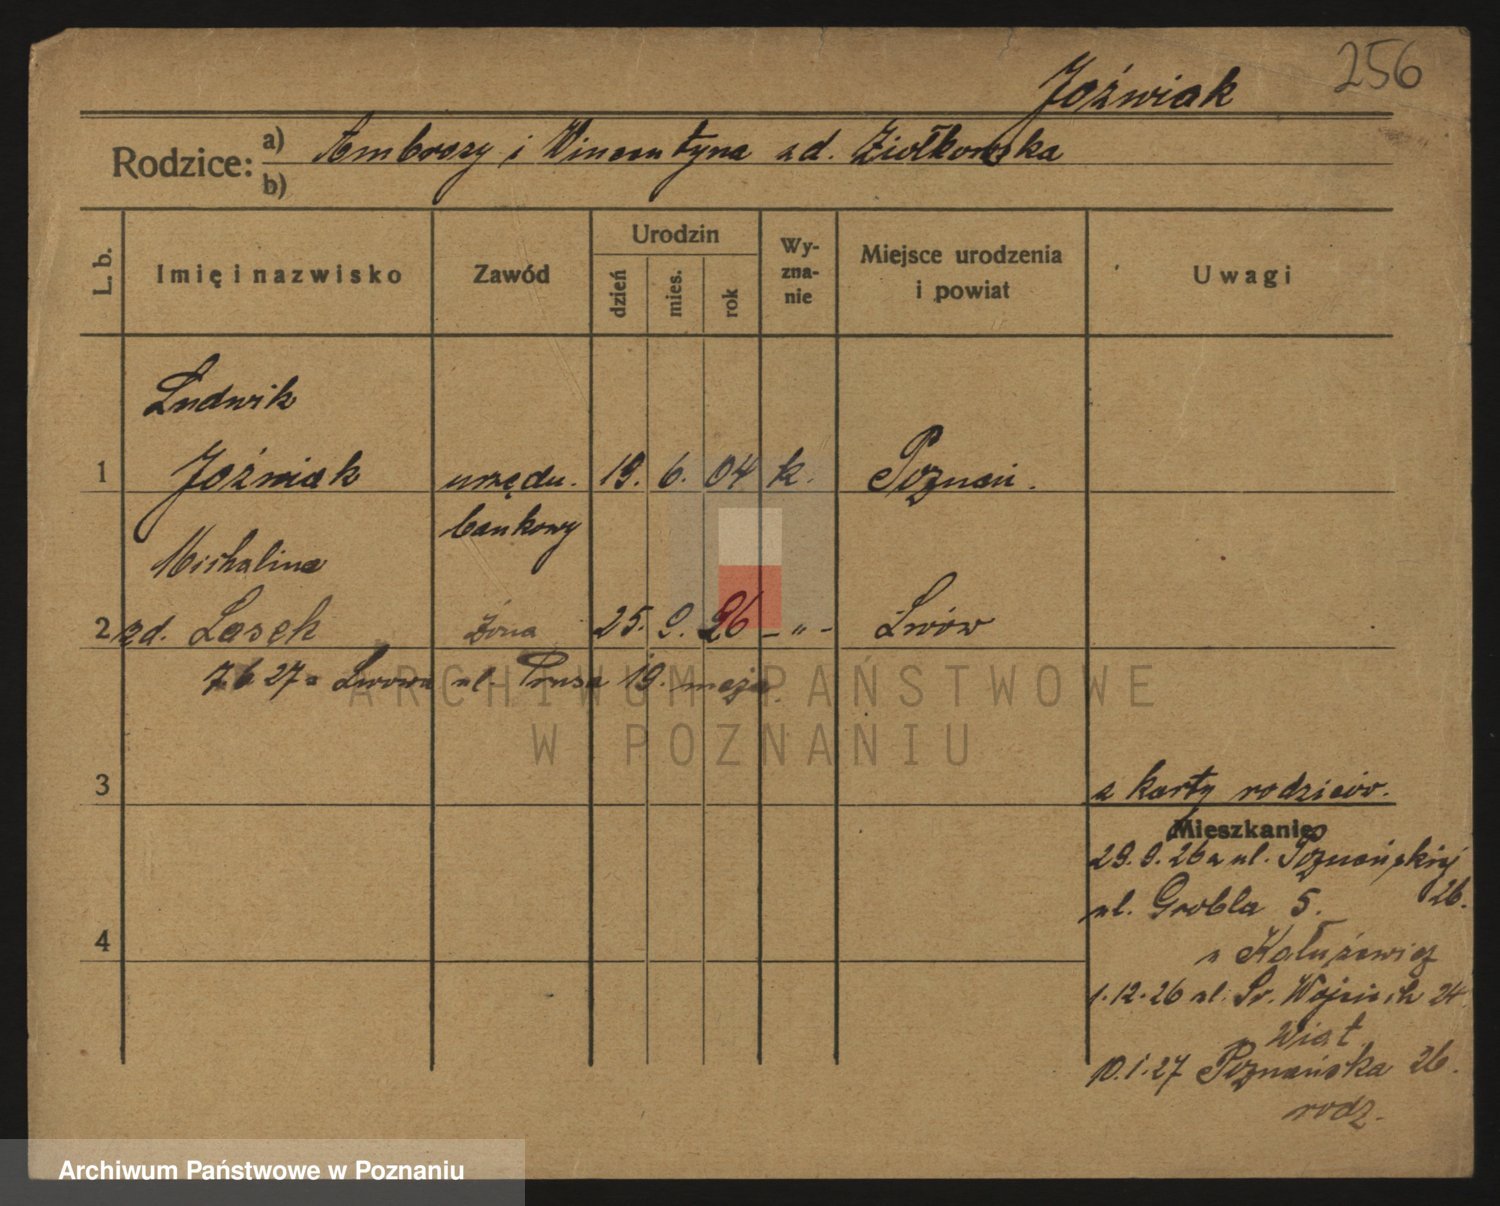 256
Jóźwiak
Rodzice: a) Ambroży i Wincentyna zd. Ziółkowska
b)
L. b. Imię i nazwisko Zawód Urodzin dzień mies. rok Wy-zna-nie Miejsce urodzenia i powiat Uwagi
Ludwik
1 Jóźwiak urzędn. 19. 6. 04 k. Poznań.
bankowy
Michalina
2 zd. Lasek żona 25. 9. 26 - " - Lwów
7 6 27 a Lwowa ul. Prusa 19. męża
ARCHIWUM PAŃSTWOWE
W POZNANIU
3 z karty rodziców.
Mieszkanie
29.9.26 z ul. Poznańskiej
26.
ul. Grobla 5.
4
z Kałużewicz
1.12.26 ul. Św. Wojciech 24
Wiat
10.1.27 Poznańska 26.
rodz.
Archiwum Państwowe w Poznaniu